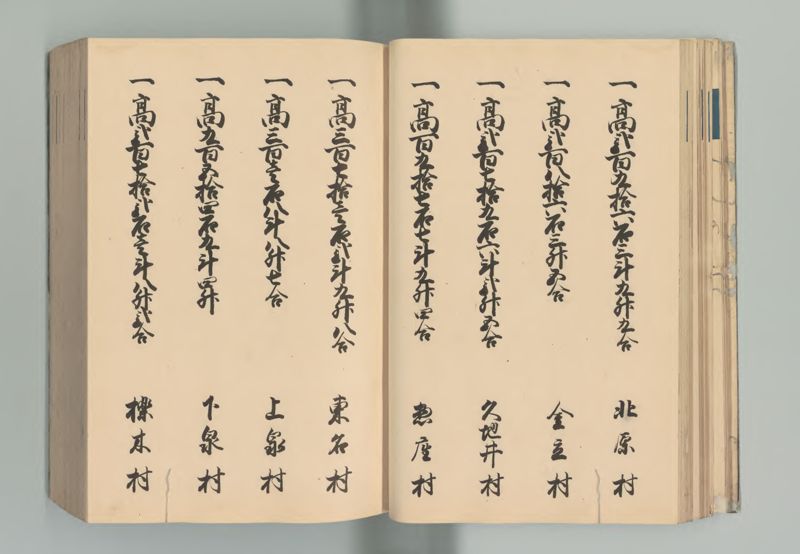 一高弐百九拾六石三斗九升九合 北原村
一高弐百八拾六石三升五合 金立村
一高弐百七拾九石六斗弐升五合 久地井村
一高百九拾七石七斗九升四合 惣座村
一高三百七拾壱石弐斗九升八合 東名村
一高三百壱石八斗八升七合 上泉村
一高九百五拾四石九斗四升 下泉村
一高弐百七拾弐石壱斗八升弐合 櫟木村